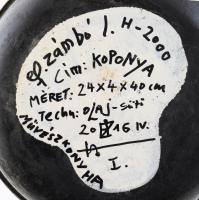 Számbó I. H-2000
Cím: KOPONYA
MÉRET: 24x4x40 cm
Techn: olaj-sütő
20 16 IV.
MŰVÉSZKONYHA
I.